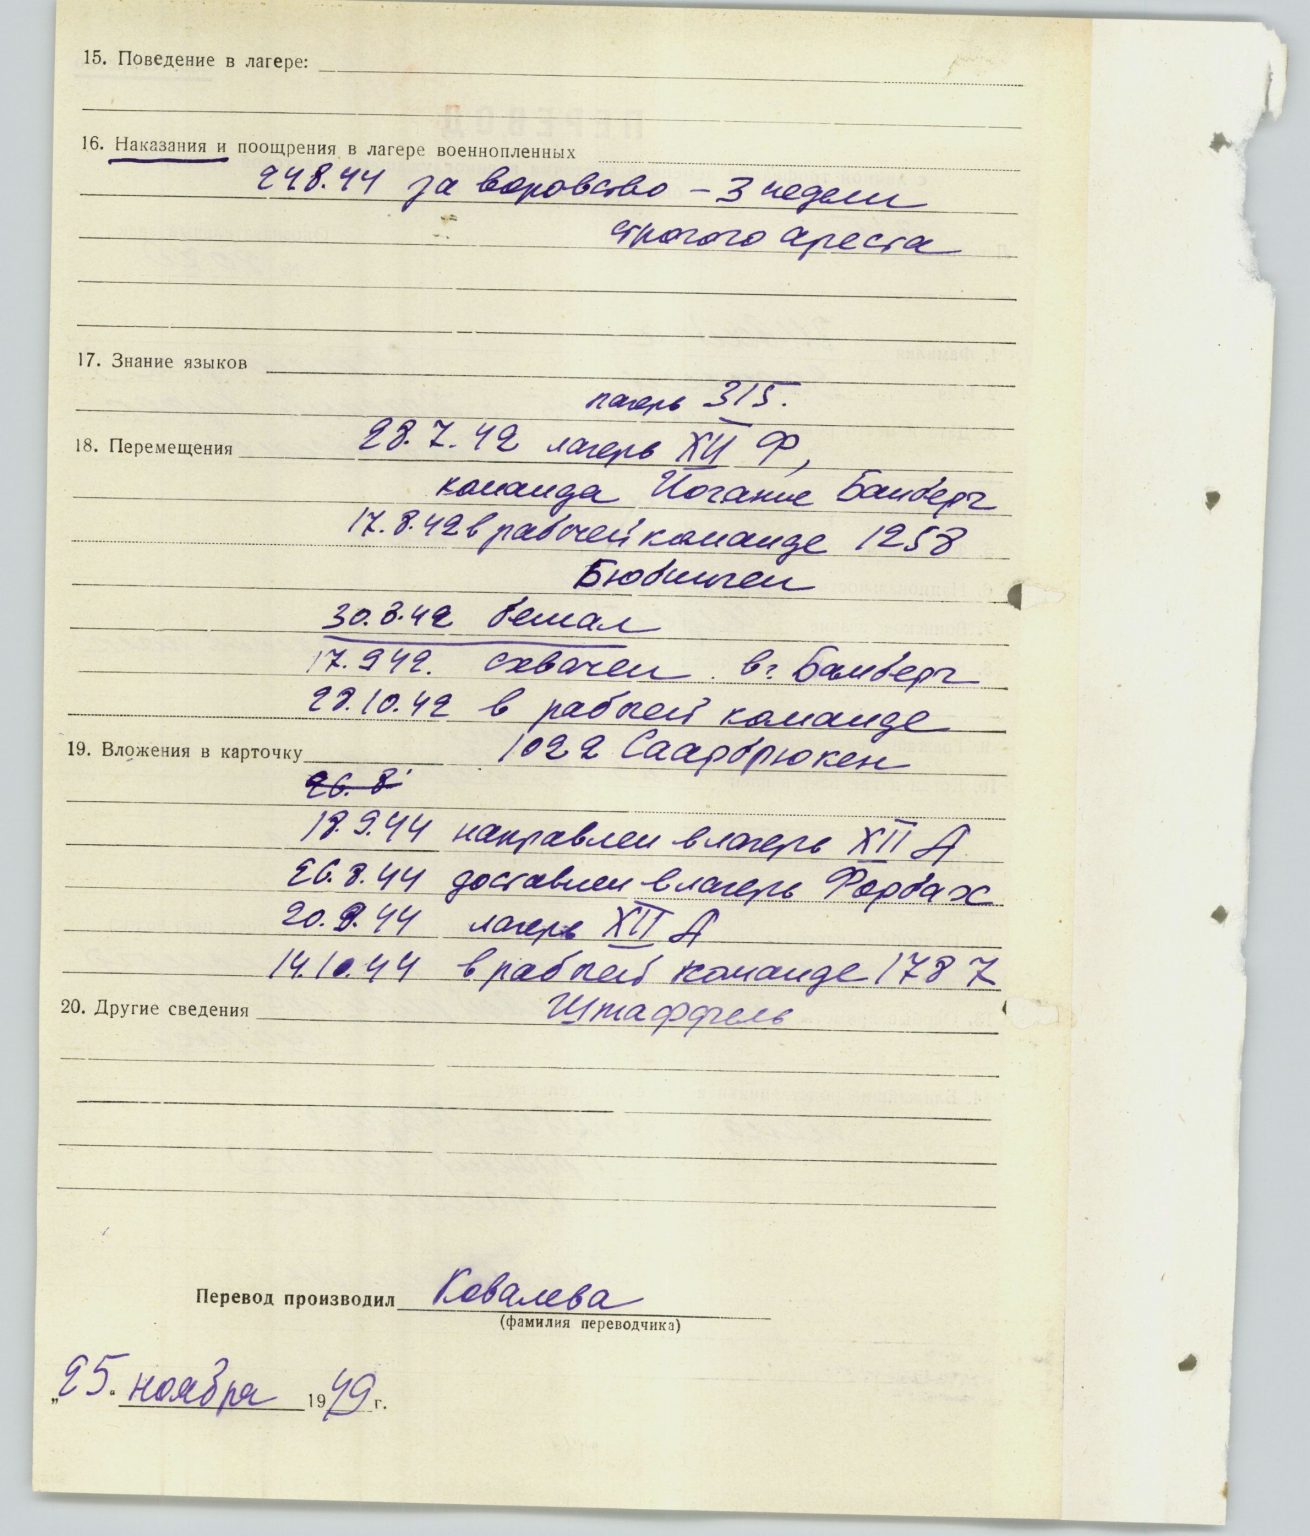 15. Поведение в лагере:
16. Наказания и поощрения в лагере военнопленных
24.8.44 за воровство – 3 недели
строгого ареста
17. Знание языков
лагерь 315.
18. Перемещения 28.7.42 лагерь XII Ф,
команда Иоганис Бамберг
17.8.42 в рабочей команде 1258
Бюбинген
30.8.42 бежал
17.9.42. схвачен в г. Бамберг
28.10.42 в рабочей команде
19. Вложения в карточку 1022 Саарбрюкен
26.8
18.9.44 направлен в лагерь XII А
26.8.44 доставлен в лагерь Форбах
20.9.44 лагерь XII А
14.10.44 в рабочей команде 1787
20. Другие сведения Штаффель
Перевод производил Ковалева
(фамилия переводчика)
„25“ ноября 1949 г.